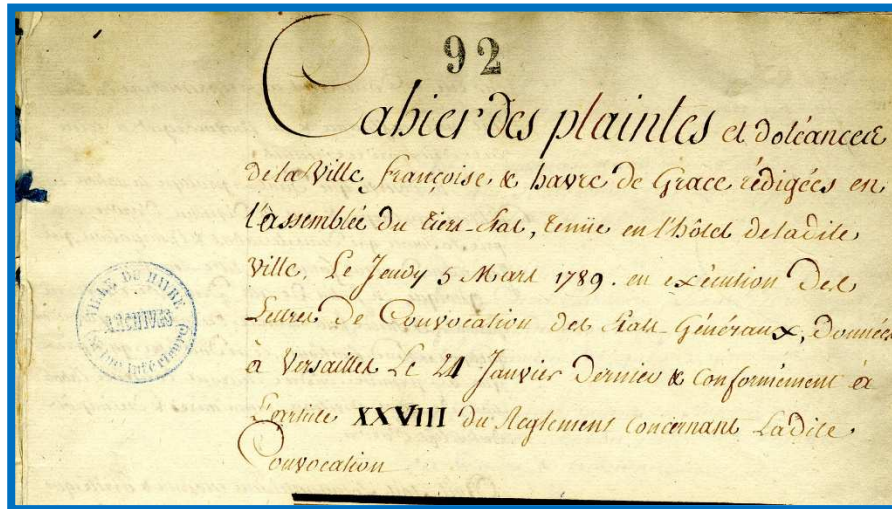 92
Cahier des plaintes et doléances
de la Ville françoise & havre de Grace rédigées en
l'assemblée du tiers-Etat, tenüe en l'hôtel de ladite
ville, Le Jeudy 5 Mars 1789. en exécution des
Lettres de Convocation des Etats-Généraux, données
à Versailles Le 24 Janvier dernier & conformément à
L'article XXVIII du Reglement concernant Ladite
Convocation
VILLE DU HAVRE
ARCHIVES